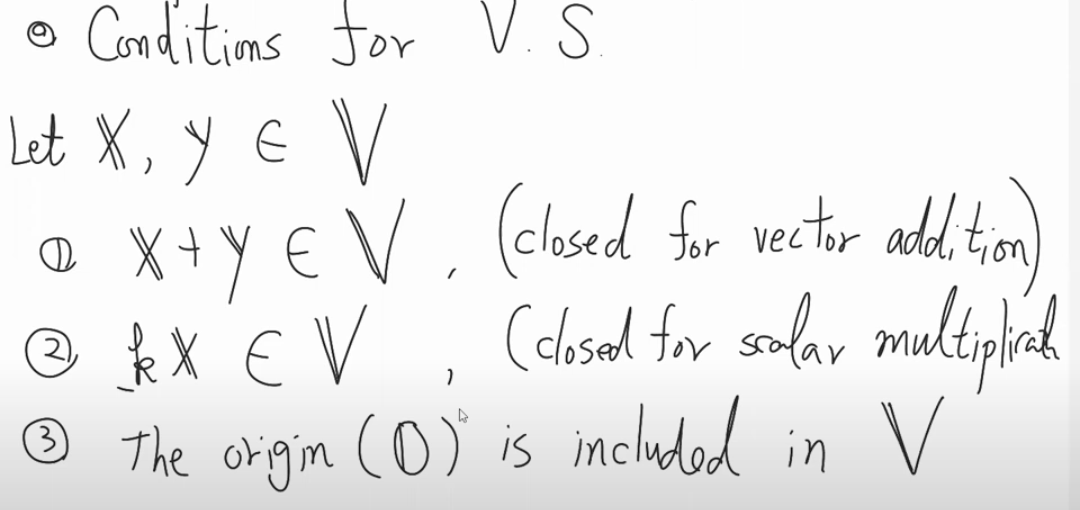 • Conditions for V.S.
Let 𝕏, y ∈ 𝕍
① 𝕏 + y ∈ 𝕍, (closed for vector addition)
②, k𝕏 ∈ 𝕍, (closed for scalar multiplicat
③ The origin (𝕆) is included in 𝕍